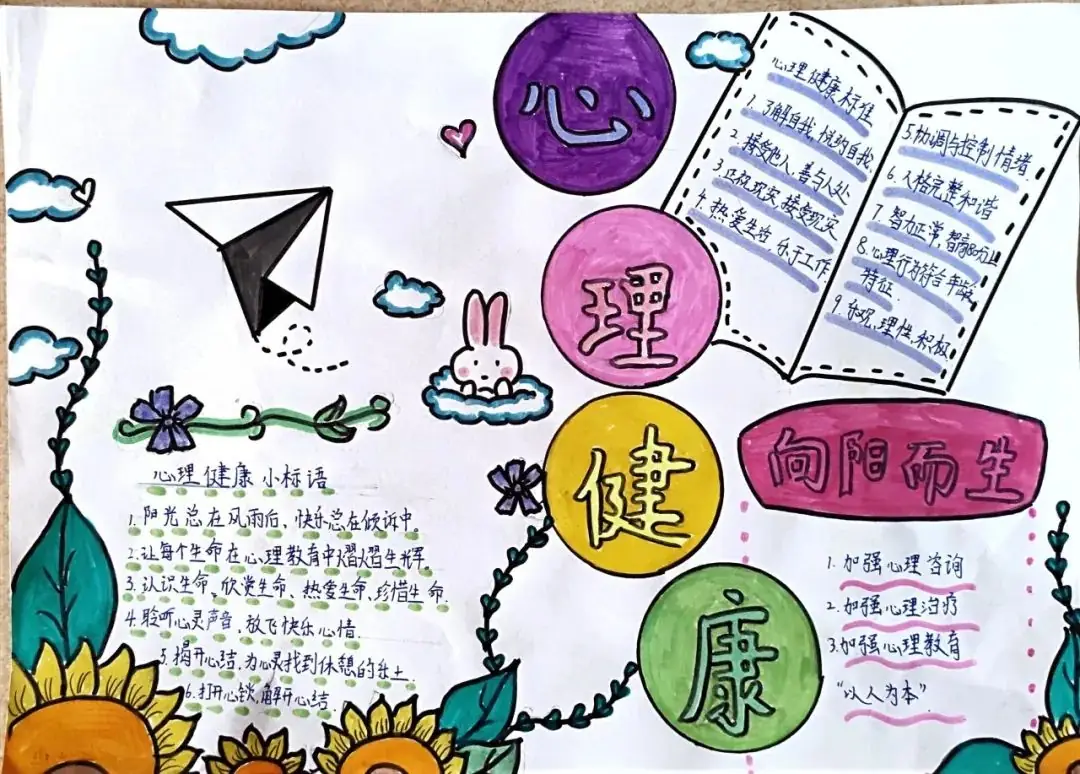 心
理
健
康
心理健康标准
1.了解自我,悦纳自我
2.接受他人,善与人处
3.正视现实,接受现实
4.热爱生活,乐于工作
5.协调与控制情绪
6.人格完整和谐
7.智力正常,智商80以上
8.心理行为符合年龄
特征.
9.乐观,理性,积极
向阳而生
1.加强心理咨询
2.加强心理治疗
3.加强心理教育
“以人为本”
心理健康小标语
1.阳光总在风雨后、快乐总在倾诉中。
2.让每个生命在心理教育中熠熠生辉。
3.认识生命、欣赏生命、热爱生命、珍惜生命.
4.聆听心灵声音,放飞快乐心情.
5.揭开心结,为心灵找到休憩的乐土.
6.打开心锁,解开心结.